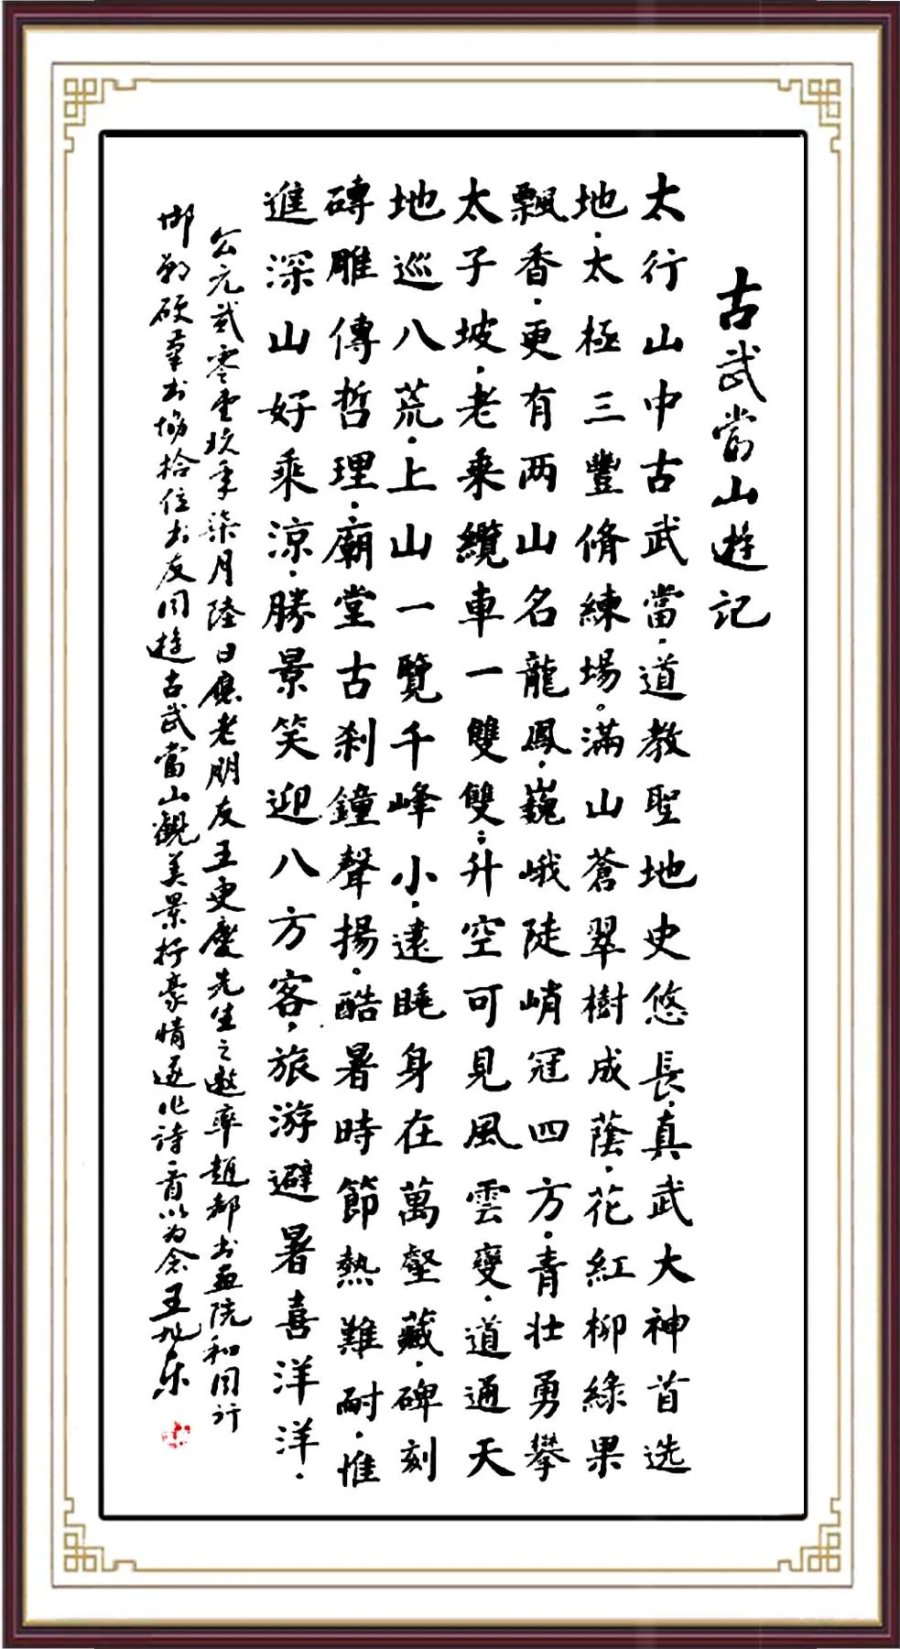 古武當山遊記
太行山中古武當·道教聖地史悠長·真武大神首选
地·太極三豐脩練場。滿山蒼翠樹成蔭·花紅柳綠果
飄香·更有两山名龍鳳·巍峨陡峭冠四方。青壮勇攀
太子坡·老乘纜車一雙雙;升空可見風雲變·道通天
地巡八荒·上山一覽千峰小·逮睡身在萬壑藏·碑刻
磚雕傳哲理·廟堂古刹鐘聲揚·酷暑時節熱難耐·惟
進深山好乘凉·勝景笑迎八方客,旅游避暑喜洋洋·
公元貳零壹玖年柒月陸日應老朋友王更慶先生之邀率趙都书画院和同行
邯鄲硬筆书協拾位书友同遊古武當山觀美景抒豪情遂作詩一首以为念王旭东